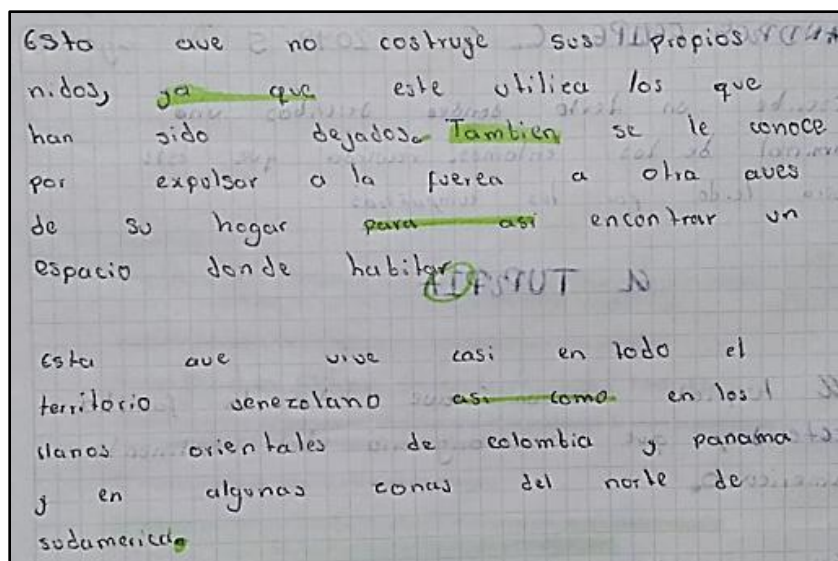 Esta ave no costruye sus propios
nidos, ya que este utilica los que
han sido dejados. Tambien se le conoce
por expulsar a la fuerea a otra aves
de su hogar para asi encontrar un
espacio donde habitar.
Esta ave vive casi en todo el
territorio venezolano asi como en los
llanos orientales de colombia y panama
y en algunas conas del norte de
sudamerica.